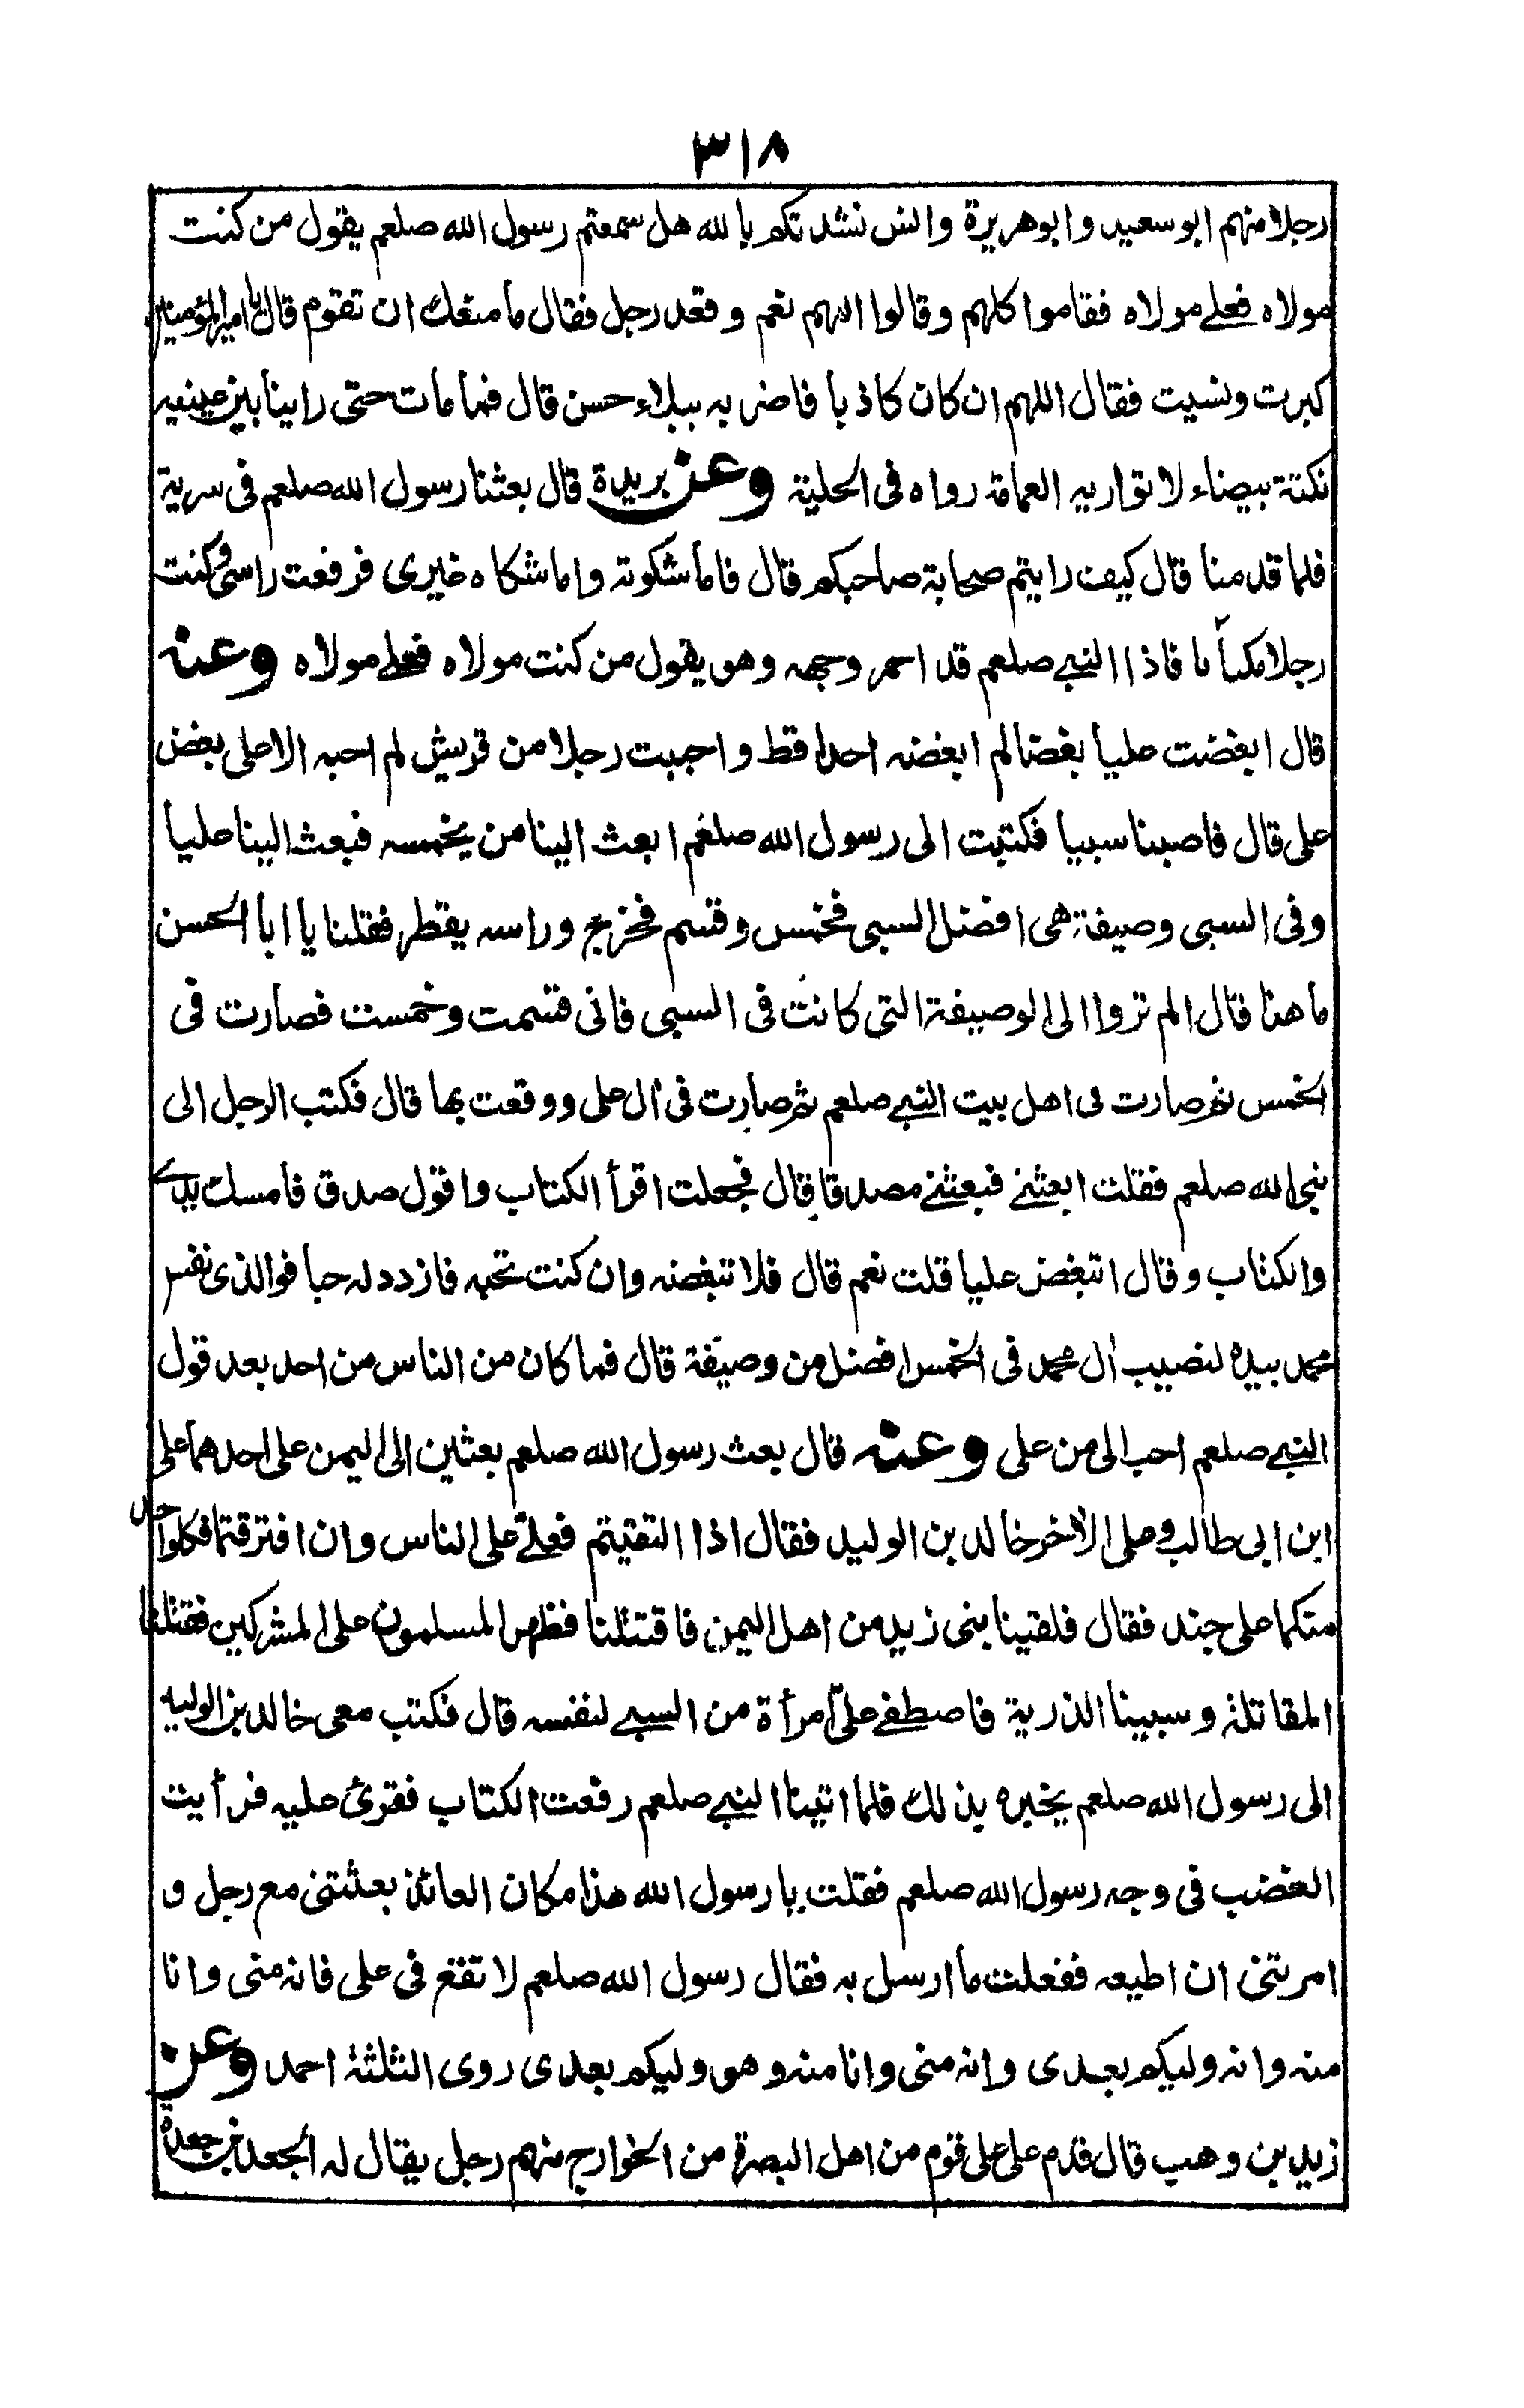 ٣١٨
رجلا منهم ابو سعيد وابو هريرة وانس نشدتكم بالله هل سمعتم رسول الله صلعم يقول من كنت
مولاه فعلے مولاه فقاموا كلهم وقالوا اللهم نعم وقعد رجل فقال ما منعك ان تقوم قال يا امير المؤمنين
كبرت ونسيت فقال اللهم ان كان كاذبا فاضربه ببلاء حسن قال فما مات حتى راينا بين عينيه
نكتة بيضاء لا تواريه العمامة رواه فى الحلية وعن بريدة قال بعثنا رسول الله صلعم فى سرية
فلما قدمنا قال كيف رايتم صحابة صاحبكم قال فاما شكوته واما شكاه غيرى فرفعت راسى وكنت
رجلا مكبابا فاذا النبے صلعم قد احمر وجهه وهو يقول من كنت مولاه فعلے مولاه وعنه
قال ابغضت عليا بغضا لم ابغضه احدا قط واحببت رجلا من قريش لم احبه الا على بغض
على قال فاصبنا سبيا فكتبت الى رسول الله صلعم ابعث الينا من يخمسه فبعث الينا عليا
وفى السبى وصيفة هى افضل السبى فخمس وقسم فخرج وراسه يقطر فقلنا يا ابا الحسن
ما هذا قال الم تروا الى الوصيفة التى كانت فى السبى فانى قسمت وخمست فصارت فى
الخمس ثم صارت فى اهل بيت النبے صلعم ثم صارت فى أل على ووقعت بها قال فكتب الرجل الى
نبى الله صلعم فقلت ابعثنے فبعثنے مصدقا قال فجعلت اقرأ الكتاب واقول صدق فامسك يدے
والكتاب وقال اتبغض عليا قلت نعم قال فلا تبغضه وان كنت تحبه فازدد له حبا فوالذى نفس
محمد بيده لنصيب أل محمد فى الخمس افضل من وصيفة قال فما كان من الناس من احد بعد قول
النبے صلعم احب الى من على وعنه قال بعث رسول الله صلعم بعثين الى اليمن على احدهما على
ابن ابى طالب وعلى الأخر خالد بن الوليد فقال اذا التقيتم فعلےّ على الناس وان افترقتما فكلوا حد
منكما على جند فقال فلقينا بنى زيد من اهل اليمن فاقتتلنا فظهر المسلمون على المشركين فقتلنا
المقاتلة وسبينا الذرية فاصطفے علىّ امرأة من السبے لنفسه قال فكتب معى خالد بن الوليد
الى رسول الله صلعم يخبره بذلك فلما اتينا النبے صلعم رفعت الكتاب فقرئ عليه فرأيت
الغضب فى وجه رسول الله صلعم فقلت يا رسول الله هذا مكان العائذ بعثتنى مع رجل و
امرتنى ان اطيعه ففعلت ما ارسل به فقال رسول الله صلعم لا تقع فى على فانه منى وانا
منه وانه وليكم بعدى وانه منى وانا منه وهو وليكم بعدى روى الثلثة احمد وعن
زيد بن وهب قال قدم على على قوم من اهل البصرة من الخوارج منهم رجل يقال له الجعد بن جعدة